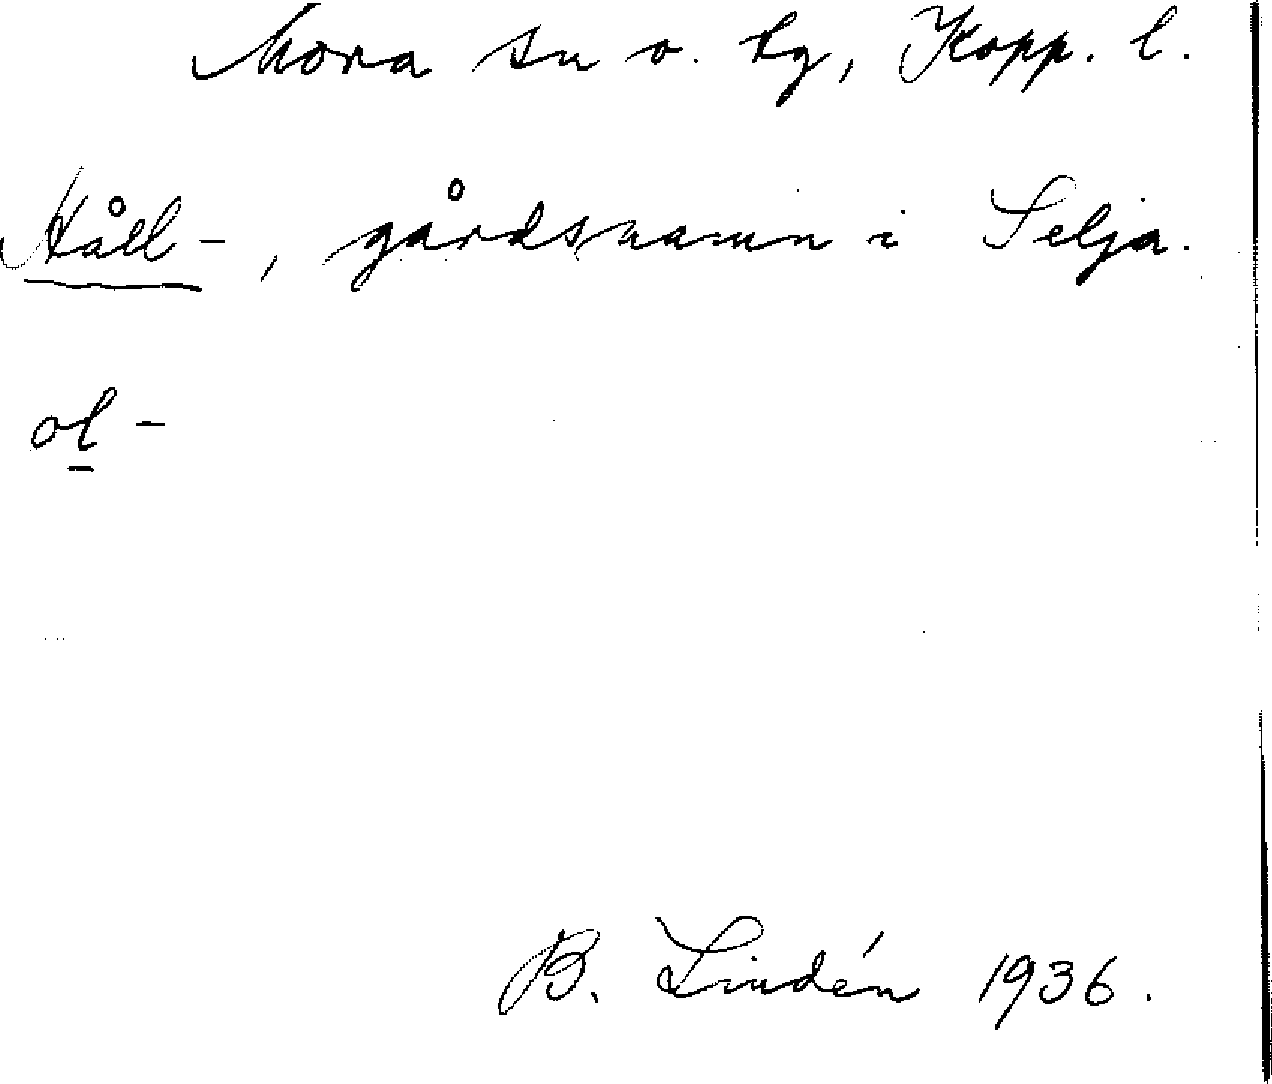 Mora sn o. hg, Kopp. l.
Håll-, gårdsnamn i Selja.
ol-
B. Lindén 1936.